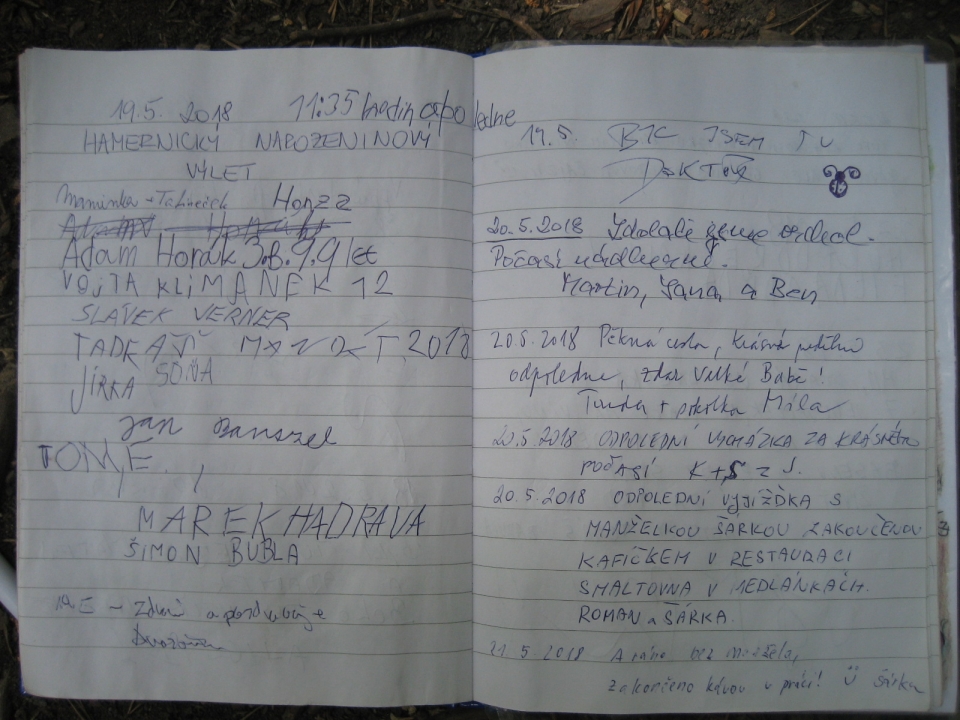 19.5. 2018 11:35 hodin odpoledne
HAMERNICKÝ NAROZENINOVÝ
VÝLET
Maminka + Honza
Adam Horák 3.B. 9.9 let
VOJTA KLIMÁNEK 12
SLÁVEK VERNER
TADEÁŠ 2018
JIRKA SOŇA
Jan
TOM E.
MAREK HADRAVA
ŠIMON BUBLA
19.5 – Zdraví a pozdravuje
19.5. BYL JSEM TU
DOKTOR
20.5.2018 Zdolali jsme vrchol.
Počasí nádherné.
Martin, Jana a Ben
20.5.2018 Pěkná cesta, krásné nedělní
odpoledne, zdar Velké Babě!
Míla
20.5.2018 ODPOLEDNÍ VYCHÁZKA ZA KRÁSNÉHO
POČASÍ K+S z J.
20.5.2018 ODPOLEDNÍ VYJÍŽĎKA S
MANŽELKOU ŠÁRKOU ZAKONČENOU
KAFÍČKEM V RESTAURACI
SMALTOVNA V MEDLÁNKÁCH.
ROMAN a ŠÁRKA.
21.5 2018 A ráno bez manžela,
zakončeno kávou v práci! Ü Šárka